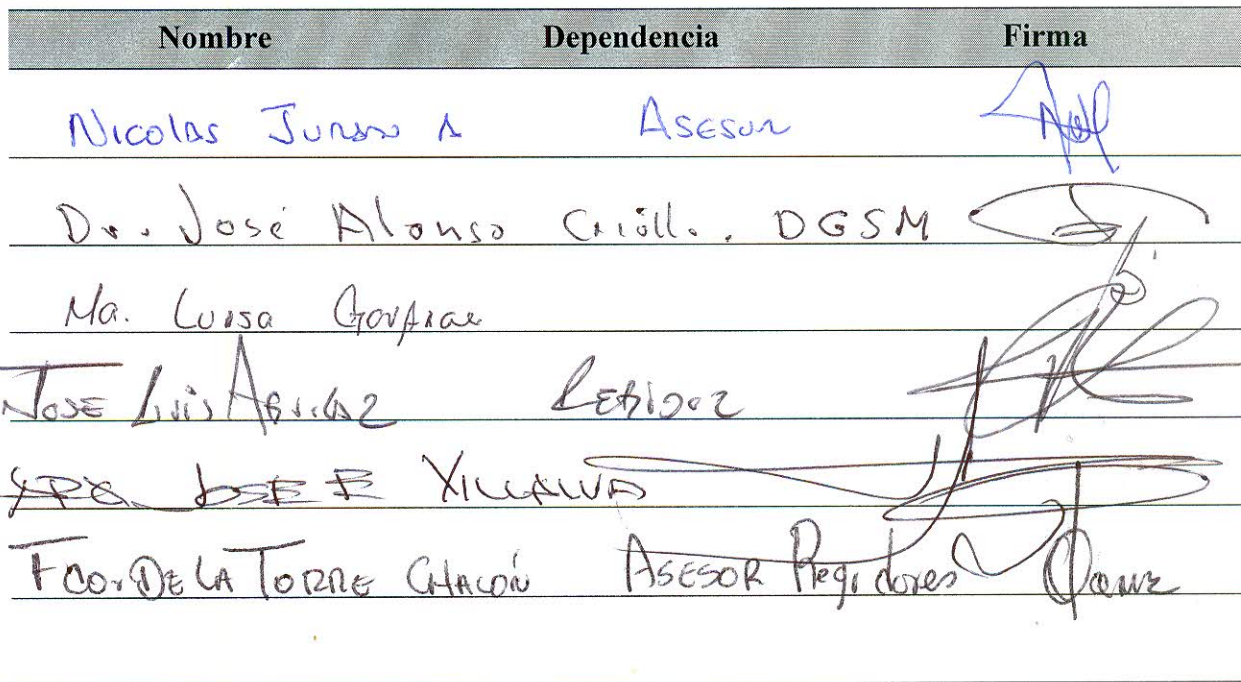 Nombre Dependencia Firma
Nicolas A Asesor
Dr. José Alonso Criollo. DGSM
Ma. Luisa
JOSE Luis Regidor
JOSE E VILLALVA
FCO. DE LA TORRE CHACÓN ASESOR Regidores